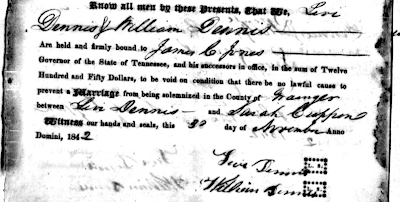 Know all men by these Presents, That We, Levi
Dennis & William Dennis
Are held and firmly bound to James C. Jones
Governor of the State of Tennessee, and his successors in office, in the sum of Twelve
Hundred and Fifty Dollars, to be void on condition that there be no lawful cause to
prevent a Marriage from being solemnized in the County of Grainger
between Levi Dennis and Sarah Cuppon
Witness our hands and seals, this 30 day of November Anno
Domini, 1842
Levi Dennis L. S.
William Dennis L. S.